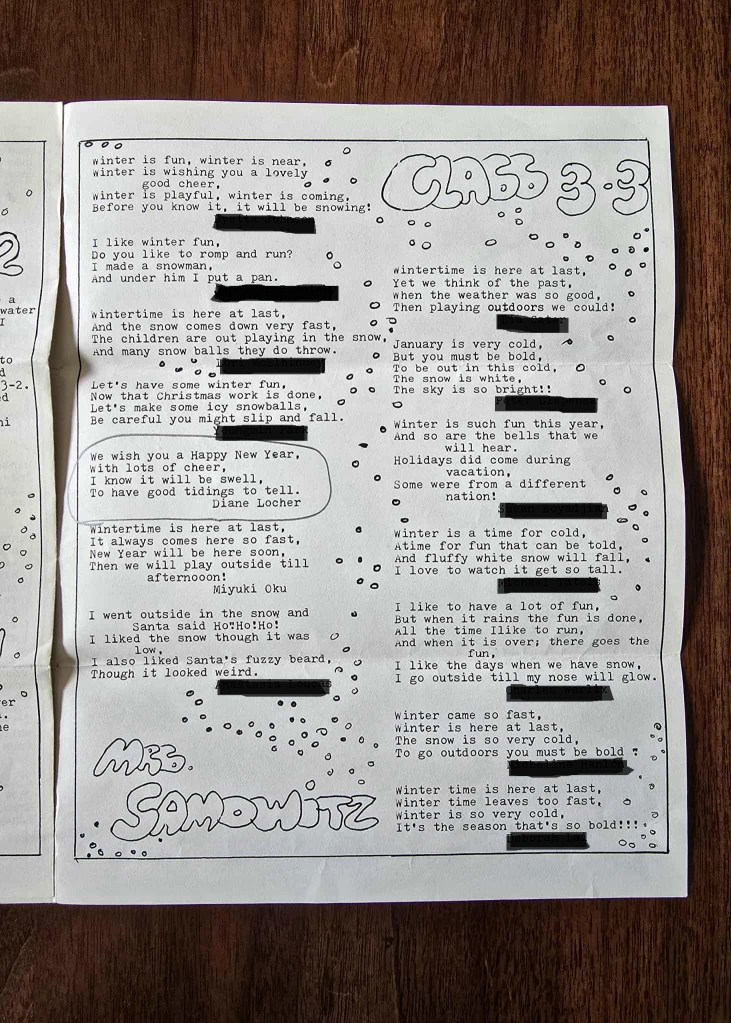 2
a
water
I
to
d
3-2.
ed
hi
ver
.
he
Winter is fun, winter is near,
Winter is wishing you a lovely
good cheer,
Winter is playful, winter is coming,
Before you know it, it will be snowing!
I like winter fun,
Do you like to romp and run?
I made a snowman,
And under him I put a pan.
Wintertime is here at last,
And the snow comes down very fast,
The children are out playing in the snow,
And many snow balls they do throw.
Let's have some winter fun,
Now that Christmas work is done,
Let's make some icy snowballs,
Be careful you might slip and fall.
We wish you a Happy New Year,
With lots of cheer,
I know it will be swell,
To have good tidings to tell.
Diane Locher
Wintertime is here at last,
It always comes here so fast,
New Year will be here soon,
Then we will play outside till
afternooon!
Miyuki Oku
I went outside in the snow and
Santa said Ho!Ho!Ho!
I liked the snow though it was
low,
I also liked Santa's fuzzy beard,
Though it looked weird.
MRS.
SAMOWITZ
CLASS 3-3
Wintertime is here at last,
Yet we think of the past,
When the weather was so good,
Then playing outdoors we could!
January is very cold,
But you must be bold,
To be out in this cold,
The snow is white,
The sky is so bright!!
Winter is such fun this year,
And so are the bells that we
will hear.
Holidays did come during
vacation,
Some were from a different
nation!
Winter is a time for cold,
Atime for fun that can be told,
And fluffy white snow will fall,
I love to watch it get so tall.
I like to have a lot of fun,
But when it rains the fun is done,
All the time Ilike to run,
And when it is over; there goes the
fun,
I like the days when we have snow,
I go outside till my nose will glow.
Winter came so fast,
Winter is here at last,
The snow is so very cold,
To go outdoors you must be bold
Winter time is here at last,
Winter time leaves too fast,
Winter is so very cold,
It's the season that's so bold!!!